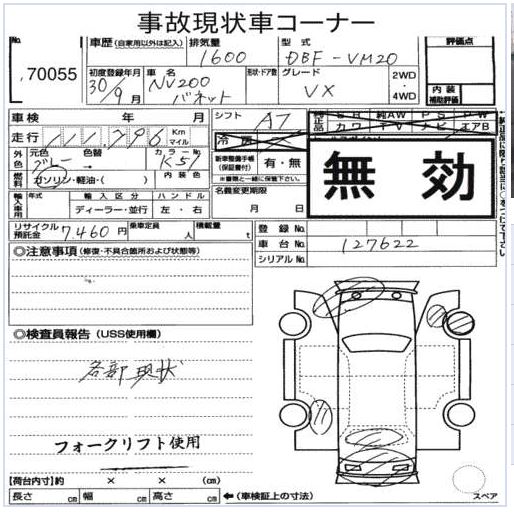 事故現状車コーナー
No. 70055
車歴 (自家用以外は記入) 排気量 1600 型式 DBF-VM20 評価点
初度登録年月 30年9月 車名 NV200 バネット 形状・ドア数 グレード VX 2WD・4WD 内装補助評価
車検 年 月 シフト A7
走行 111,796 Km マイル 冷房
外装色 元色 グレー 色替 → カラーNo. K51 新車整備手帳(保証書付) 有・無
燃料 ガソリン・軽油・( ) 内装色 ※書類と一緒に保管下さい。
輸入車用 年式 輸入区分 ハンドル 名義変更期限
ディーラー・並行 左・右 月 日
無効
リサイクル預託金 7,460円 乗車定員 人 積載量 登録No.
車台No. 127622
シリアルNo.
◎注意事項 (修復・不具合箇所および状態等)
◎検査員報告 (USS使用欄)
各部現状
フォークリフト使用
【荷台内寸】約 × × (cm)
長さ cm 幅 cm 高さ cm ←(車検証上の寸法)
スペア